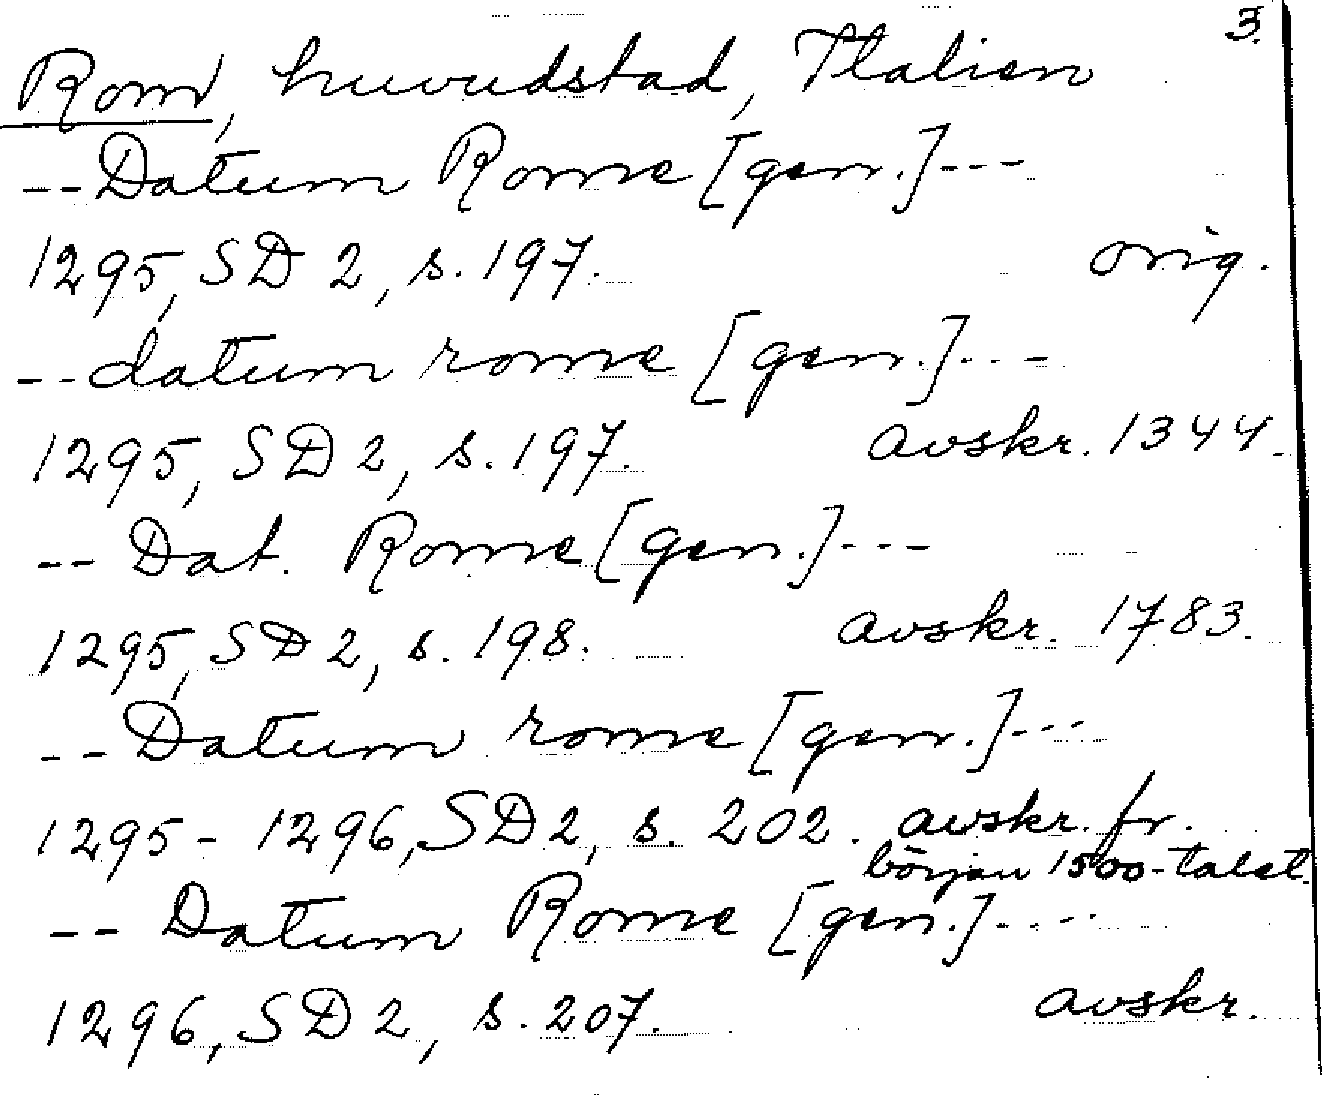 3.
Rom, huvudstad, Italien
-- Datum Rome [gen.] ---
1295, SD 2, s. 197. orig.
-- datum rome [gen.] ---
1295, SD 2, s. 197. avskr. 1344.
-- Dat. Rome [gen.] ---
1295, SD 2, s. 198. avskr. 1783.
-- Datum rome [gen.] ---
1295 - 1296, SD 2, s. 202. avskr. fr.
början 1500-talet.
-- Datum Rome [gen.] ----
1296, SD 2, s. 207. avskr.